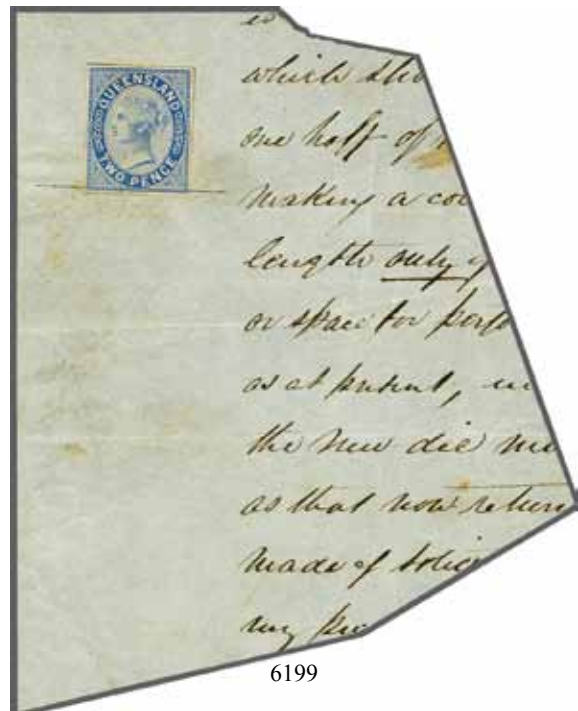 QUEENSLAND
TWO PENCE
which
one half of
making a
length only
or space for
as at present,
the new die
as that now return
made of
my
6199